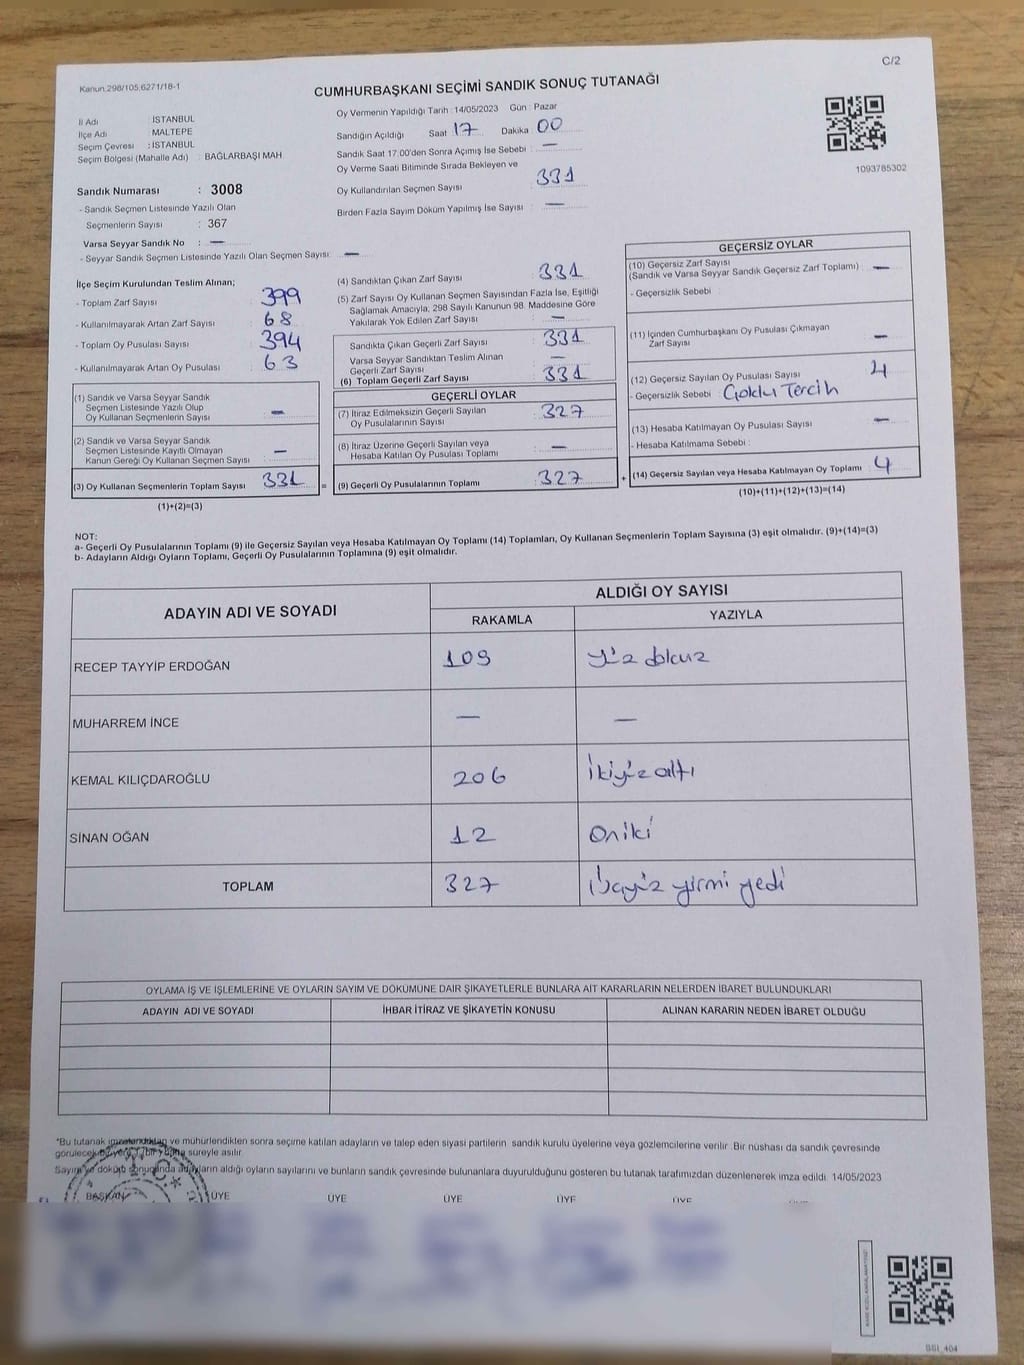 C/2
Kanun.298/105,6271/18-1
CUMHURBAŞKANI SEÇİMİ SANDIK SONUÇ TUTANAĞI
İl Adı : İSTANBUL
İlçe Adı : MALTEPE
Seçim Çevresi : İSTANBUL
Seçim Bölgesi (Mahalle Adı) : BAĞLARBAŞI MAH
Sandık Numarası : 3008
- Sandık Seçmen Listesinde Yazılı Olan
Seçmenlerin Sayısı : 367
Varsa Seyyar Sandık No : —
- Seyyar Sandık Seçmen Listesinde Yazılı Olan Seçmen Sayısı: —
Oy Vermenin Yapıldığı Tarih : 14/05/2023 Gün : Pazar
Sandığın Açıldığı Saat 17 Dakika 00
Sandık Saat 17.00'den Sonra Açımış İse Sebebi : —
Oy Verme Saati Bitiminde Sırada Bekleyen ve
Oy Kullandırılan Seçmen Sayısı 331
Birden Fazla Sayım Döküm Yapılmış İse Sayısı : —
1093785302
İlçe Seçim Kurulundan Teslim Alınan;
- Toplam Zarf Sayısı : 399
- Kullanılmayarak Artan Zarf Sayısı : 68
- Toplam Oy Pusulası Sayısı : 394
- Kullanılmayarak Artan Oy Pusulası : 63
(1) Sandık ve Varsa Seyyar Sandık
Seçmen Listesinde Yazılı Olup
Oy Kullanan Seçmenlerin Sayısı —
(2) Sandık ve Varsa Seyyar Sandık
Seçmen Listesinde Kayıtlı Olmayan
Kanun Gereği Oy Kullanan Seçmen Sayısı —
(3) Oy Kullanan Seçmenlerin Toplam Sayısı 331 =
(1)+(2)=(3)
(4) Sandıktan Çıkan Zarf Sayısı : 331
(5) Zarf Sayısı Oy Kullanan Seçmen Sayısından Fazla İse, Eşitliği
Sağlamak Amacıyla, 298 Sayılı Kanunun 98. Maddesine Göre
Yakılarak Yok Edilen Zarf Sayısı : —
Sandıkta Çıkan Geçerli Zarf Sayısı : 331
Varsa Seyyar Sandıktan Teslim Alınan
Geçerli Zarf Sayısı : —
(6) Toplam Geçerli Zarf Sayısı : 331
GEÇERLİ OYLAR
(7) İtiraz Edilmeksizin Geçerli Sayılan
Oy Pusulalarının Sayısı : 327
(8) İtiraz Üzerine Geçerli Sayılan veya
Hesaba Katılan Oy Pusulası Toplamı : —
(9) Geçerli Oy Pusulalarının Toplamı : 327 +
GEÇERSİZ OYLAR
(10) Geçersiz Zarf Sayısı
(Sandık ve Varsa Seyyar Sandık Geçersiz Zarf Toplamı) : —
- Geçersizlik Sebebi :
(11) İçinden Cumhurbaşkanı Oy Pusulası Çıkmayan
Zarf Sayısı —
(12) Geçersiz Sayılan Oy Pusulası Sayısı : 4
- Geçersizlik Sebebi : Çoklu Tercih
(13) Hesaba Katılmayan Oy Pusulası Sayısı : —
- Hesaba Katılmama Sebebi :
(14) Geçersiz Sayılan veya Hesaba Katılmayan Oy Toplamı : 4
(10)+(11)+(12)+(13)=(14)
NOT:
a- Geçerli Oy Pusulalarının Toplamı (9) ile Geçersiz Sayılan veya Hesaba Katılmayan Oy Toplamı (14) Toplamları, Oy Kullanan Seçmenlerin Toplam Sayısına (3) eşit olmalıdır. (9)+(14)=(3)
b- Adayların Aldığı Oyların Toplamı, Geçerli Oy Pusulalarının Toplamına (9) eşit olmalıdır.
ADAYIN ADI VE SOYADI
ALDIĞI OY SAYISI
RAKAMLA YAZIYLA
RECEP TAYYİP ERDOĞAN 109 Yüz dokuz
MUHARREM İNCE — —
KEMAL KILIÇDAROĞLU 206 İkiyüz altı
SİNAN OĞAN 12 Oniki
TOPLAM 327 Üçyüz yirmi yedi
OYLAMA İŞ VE İŞLEMLERİNE VE OYLARIN SAYIM VE DÖKÜMÜNE DAİR ŞİKAYETLERLE BUNLARA AİT KARARLARIN NELERDEN İBARET BULUNDUKLARI
ADAYIN ADI VE SOYADI İHBAR İTİRAZ VE ŞİKAYETİN KONUSU ALINAN KARARIN NEDEN İBARET OLDUĞU
*Bu tutanak imzalandıktan ve mühürlendikten sonra seçime katılan adayların ve talep eden siyasi partilerin sandık kurulu üyelerine veya gözlemcilerine verilir. Bir nüshası da sandık çevresinde
görülecek bir yere 1 bir hafta süreyle asılır.
Sayım ve döküm sonucunda adayların aldığı oyların sayılarını ve bunların sandık çevresinde bulunanlara duyurulduğunu gösteren bu tutanak tarafımızdan düzenlenerek imza edildi. 14/05/2023
T.C.
BAŞKAN ÜYE ÜYE ÜYE ÜYE ÜYE
SSI_404